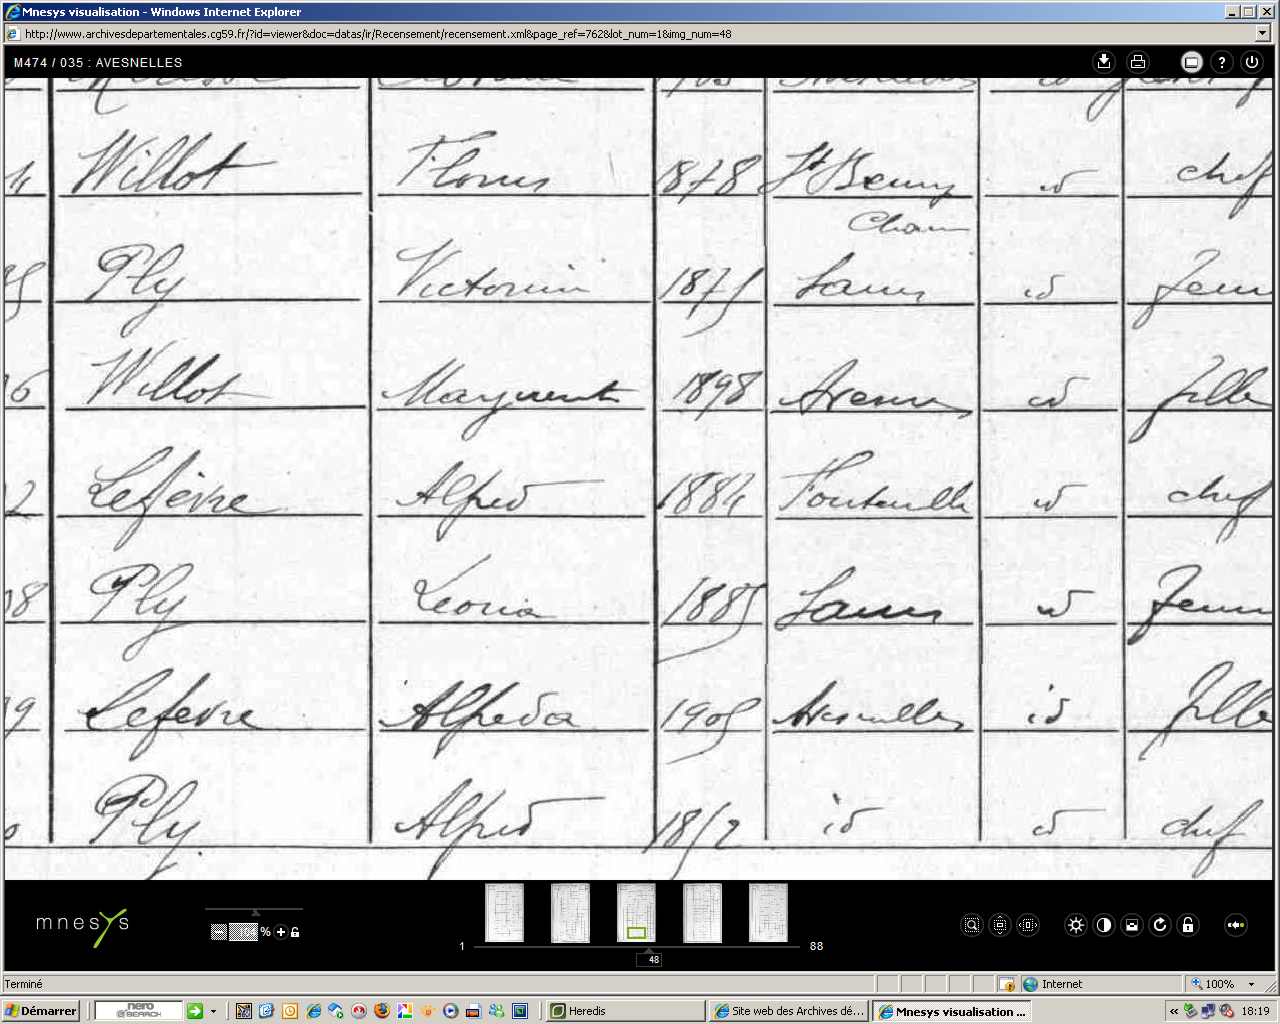 Mnesys visualisation - Windows Internet Explorer
http://www.archivesdepartementales.cg59.fr/?id=viewer&doc=datas/ir/Recensement/recensement.xml&page_ref=762&lot_num=1&img_num=48
M474 / 035 : AVESNELLES
Willot Florus 1878 St Remy id chef
Chau
Ply Victorine 1875 Sains id fem
Willot Marguerite 1898 Avesnes id fille
Lefèvre Alfred 1884 Fontenelle id chef
Ply Leonia 1885 Sains id fem
Lefevre Alfreda 1905 Avesnelles id fille
Ply Alfred 1852 id id chef
mnesys
%
1 88
48
Terminé Internet 100%
Démarrer nero SEARCH Heredis Site web des Archives dé... Mnesys visualisation ... 18:19